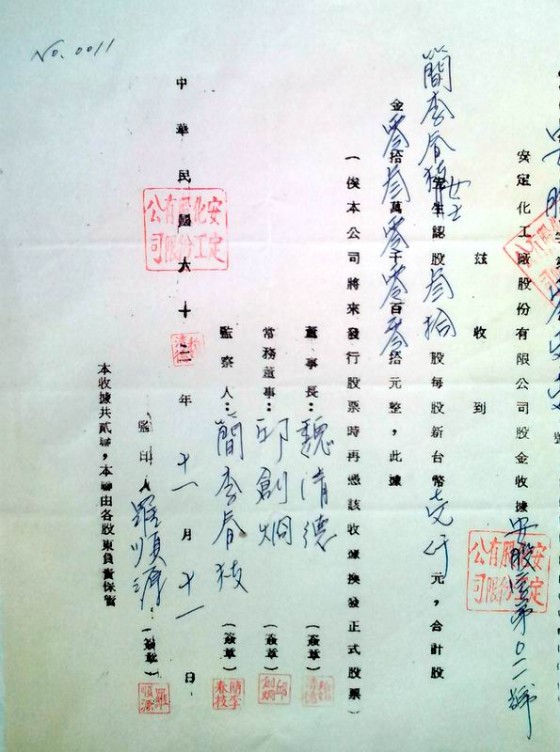 安定化工廠股份有限公司股金收據 安股金字第0一一號
茲收到
簡李春枝女士先生認股叁拾股每股新台幣壹仟元，合計股
金零拾叁萬零千零百零拾元整，此據
（俟本公司將來發行股票時再憑該收據換發正式股票）
董事長：魏清德（簽章）
常務董事：邱創烱（簽章）
監察人：簡李春枝（簽章）
簡李春枝
監印人 羅順源（簽章）
羅順源
中華民國六十三年十一月十一日
安定化工股份有限公司
安定化工股份有限公司
本收據共貳聯，本聯由各股東負責保管
No.0011